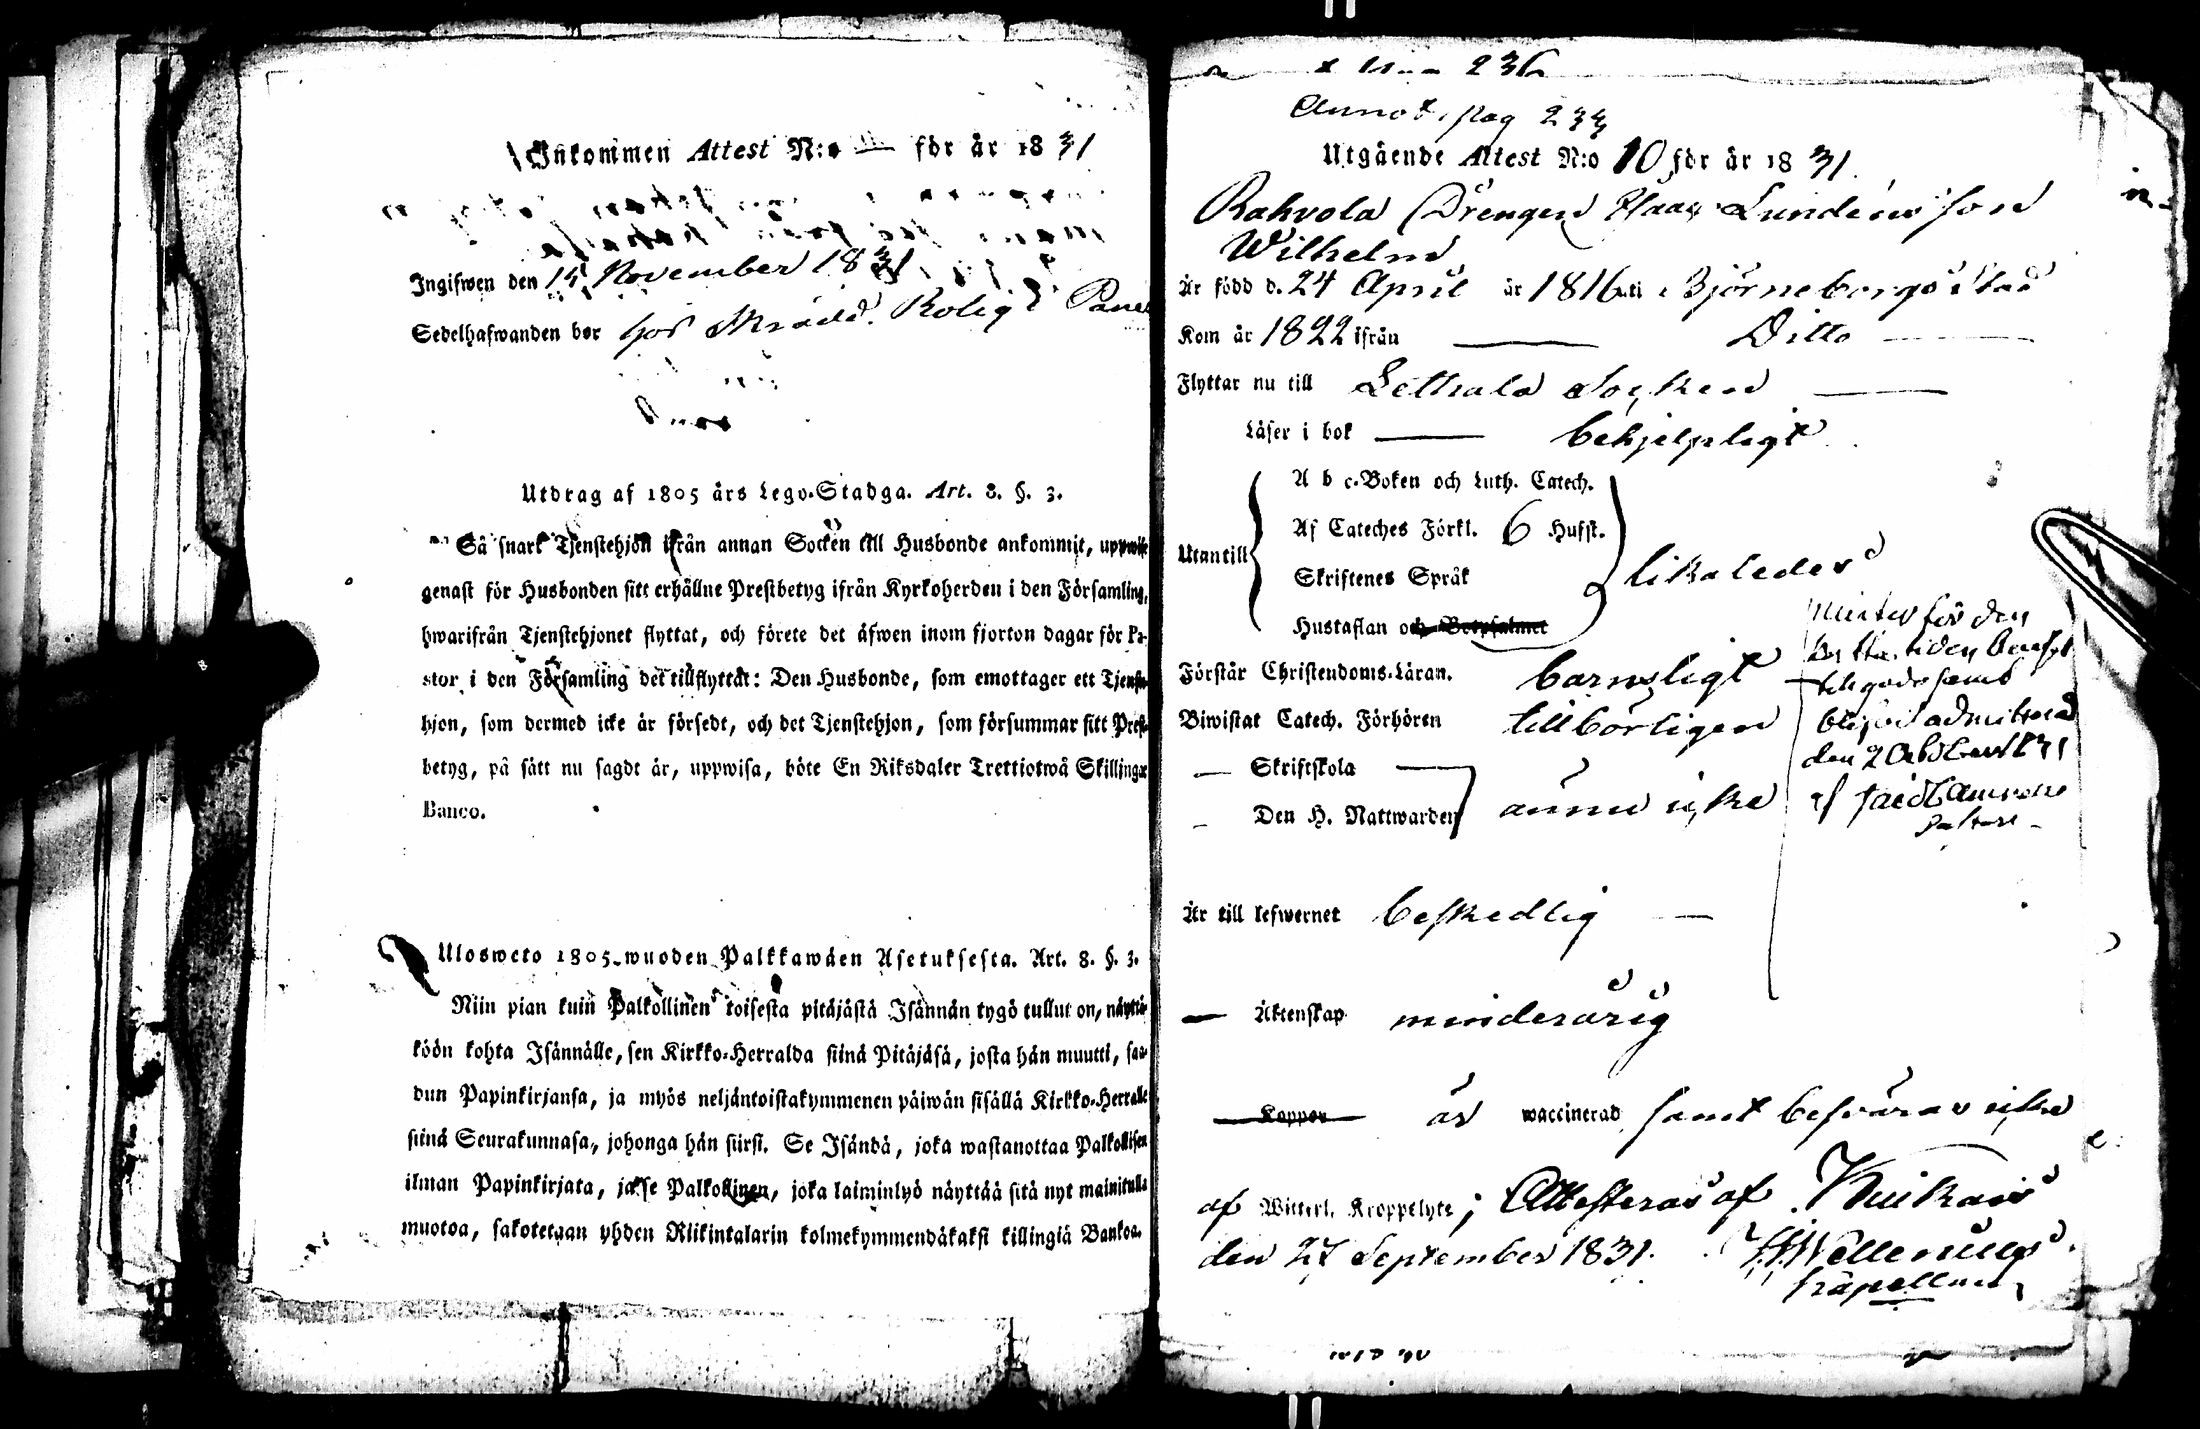 Inkommen Attest N:o för år 1831
Ingifwen den 15 November 1831
Sedelhafwanden bor hos Skrädd. Rolig i
Utdrag af 1805 års Lego-Stadga. Art. 8. §. 3.
Så snart Tjenstehjon ifrån annan Socken till Husbonde ankommit, uppwise
genast för Husbonden sitt erhållne Prestbetyg ifrån Kyrkoherden i den Församling,
hwarifrån Tjenstehjonet flyttat, och förete det äfwen inom fjorton dagar för Pa-
stor i den Församling det tillflyttat: Den Husbonde, som emottager ett Tjenste-
hjon, som dermed icke är försedt, och det Tjenstehjon, som försummar sitt Prest-
betyg, på sätt nu sagdt är, uppwisa, böte En Riksdaler Trettiotwå Skillingar
Banco.
Ulosweto 1805-wuoden Palkkawäen Asetuksesta. Art. 8. §. 3.
Niin pian kuin Palkollinen toisesta pitäjästä Isännän tygö tullut on, näyttä-
köön kohta Isännälle, sen Kirkko-Herralda siinä Pitäjäsä, josta hän muutti, saa-
dun Papinkirjansa, ja myös neljäntoistakymmenen päiwän sisällä Kirkko-Herralle
siinä Seurakunnasa, johonga hän siirsi. Se Isändä, joka wastanottaa Palkollisen
ilman Papinkirjata, ja se Palkollinen, joka laiminlyö näyttää sitä nyt mainitulla
muotoa, sakotetaan yhden Riikintalarin kolmekymmendäkaksi killingiä Bankoa.
236
Annot. pag 233
Utgående Attest N:o 10 för år 1831.
Rahvola Drengen Isaac Lundéns son
Wilhelm
Är född d. 24 April år 1816 uti Björneborgs stad
Kom år 1822 ifrån Ditto
Flyttar nu till Lethala Socken
Läser i bok behjelpligt
A b c-Boken och Luth. Catech.
Af Cateches Förkl. 6 Hufst.
Utantill
Skriftenes Språk
likaledes
Hustaflan och Botpsalmer
Förstår Christendoms-Läran. barnsligt
Biwistat Catech. Förhören tillbörligen
Skriftskola
Den H. Nattwarden ännu icke
för den
samt
blifvit admitterad
den 2
af
Är till lefwernet beskedlig
Äktenskap minderårig
Koppor är waccinerad samt besväras icke
af Witterl. Kroppslyte; Attesteras af Kuikais
den 27 September 1831.
Capellan